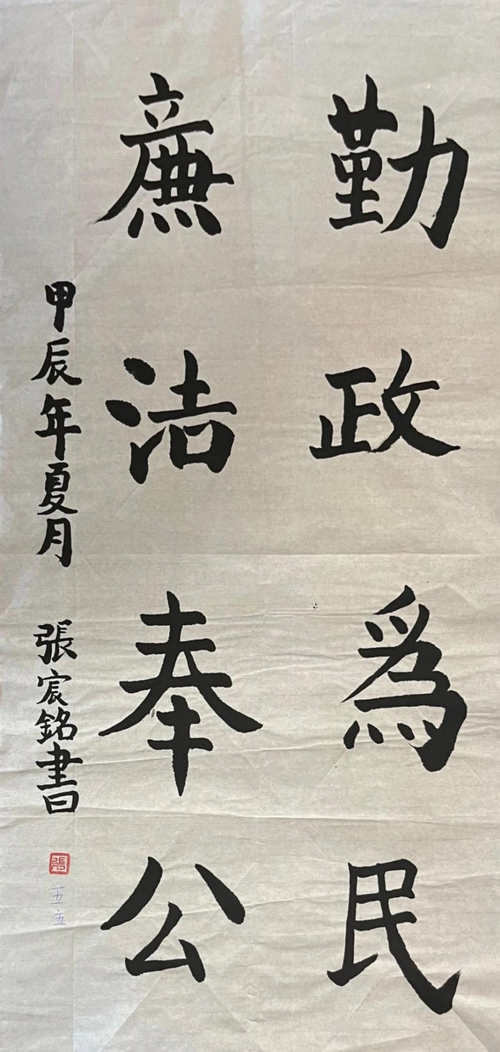 勤政爲民
廉洁奉公
甲辰年夏月 張宸銘書
張
五五